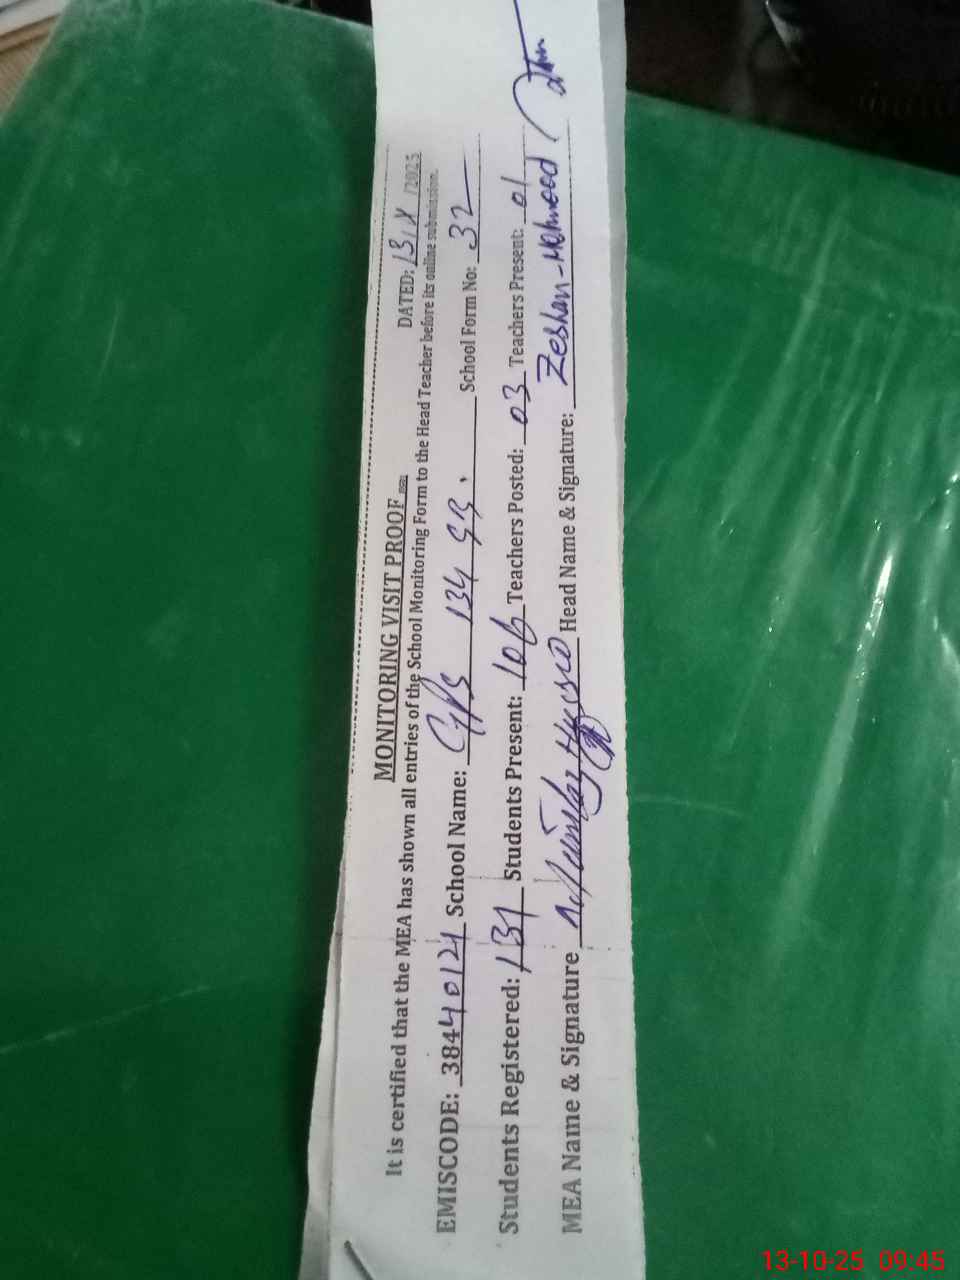 MONITORING VISIT PROOF
DATED: 13/X/2025
It is certified that the MEA has shown all entries of the School Monitoring Form to the Head Teacher before its online submission.
EMISCODE: 38440121 School Name: GPS 134 SB. School Form No: 32
Students Registered: 131 Students Present: 106 Teachers Posted: 03 Teachers Present: 01
MEA Name & Signature Head Name & Signature: Zeshan-Mahmood
13-10-25 09:45